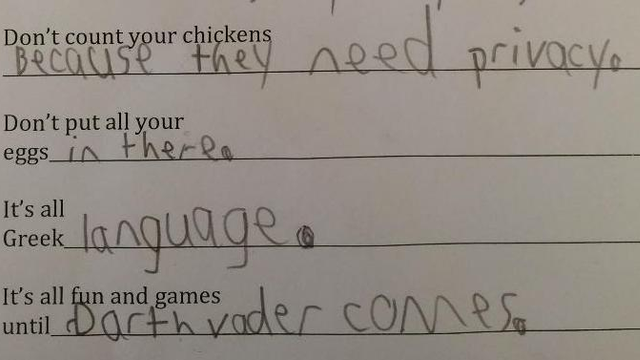 Don't count your chickens
Because they need privacy.
Don't put all your
eggs in there.
It's all
Greek language.
It's all fun and games
until Darth vader comes.